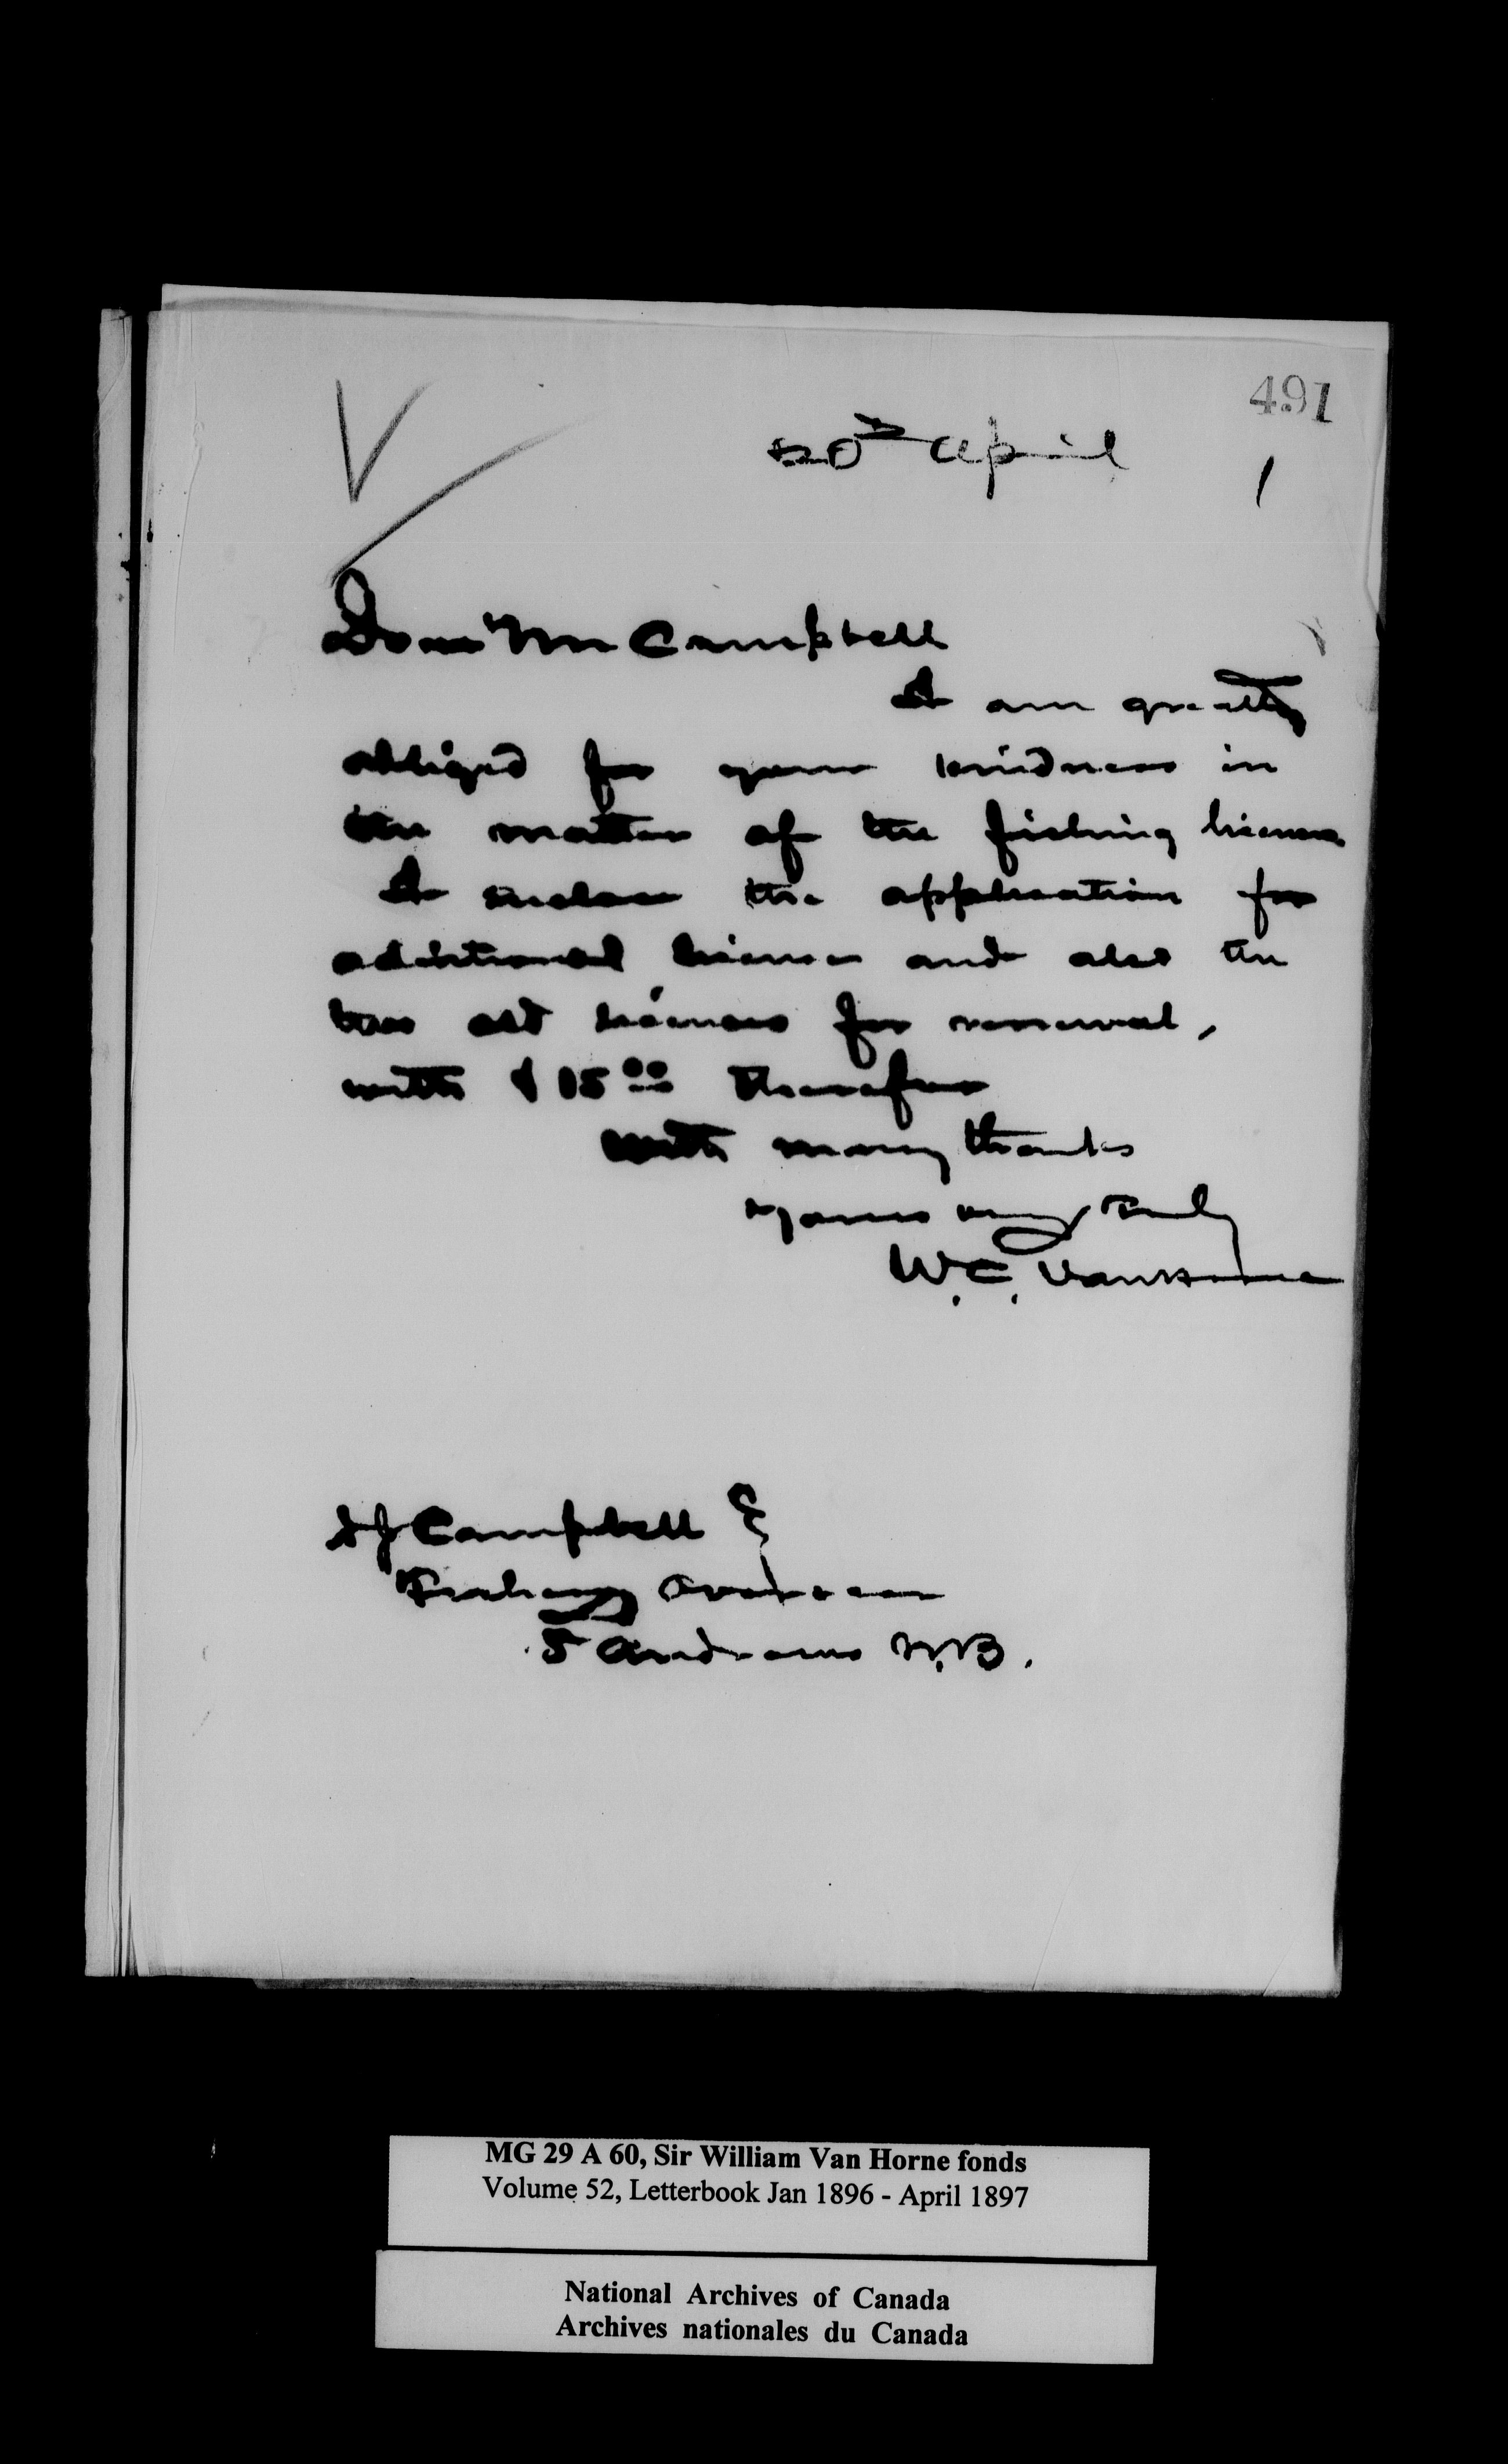 491
20th April
Dear Mr Campbell
I am greatly
obliged for your kindness in
the matter of the fishing license
I enclose the application for
additional license and also the
two old licenses for renewal,
with $15 00 therefor
With many thanks
Yours very truly
W.C. Van Horne
Campbell
Fishery Overseer
St Andrews N.B.
MG 29 A 60, Sir William Van Horne fonds
Volume 52, Letterbook Jan 1896 - April 1897
National Archives of Canada
Archives nationales du Canada